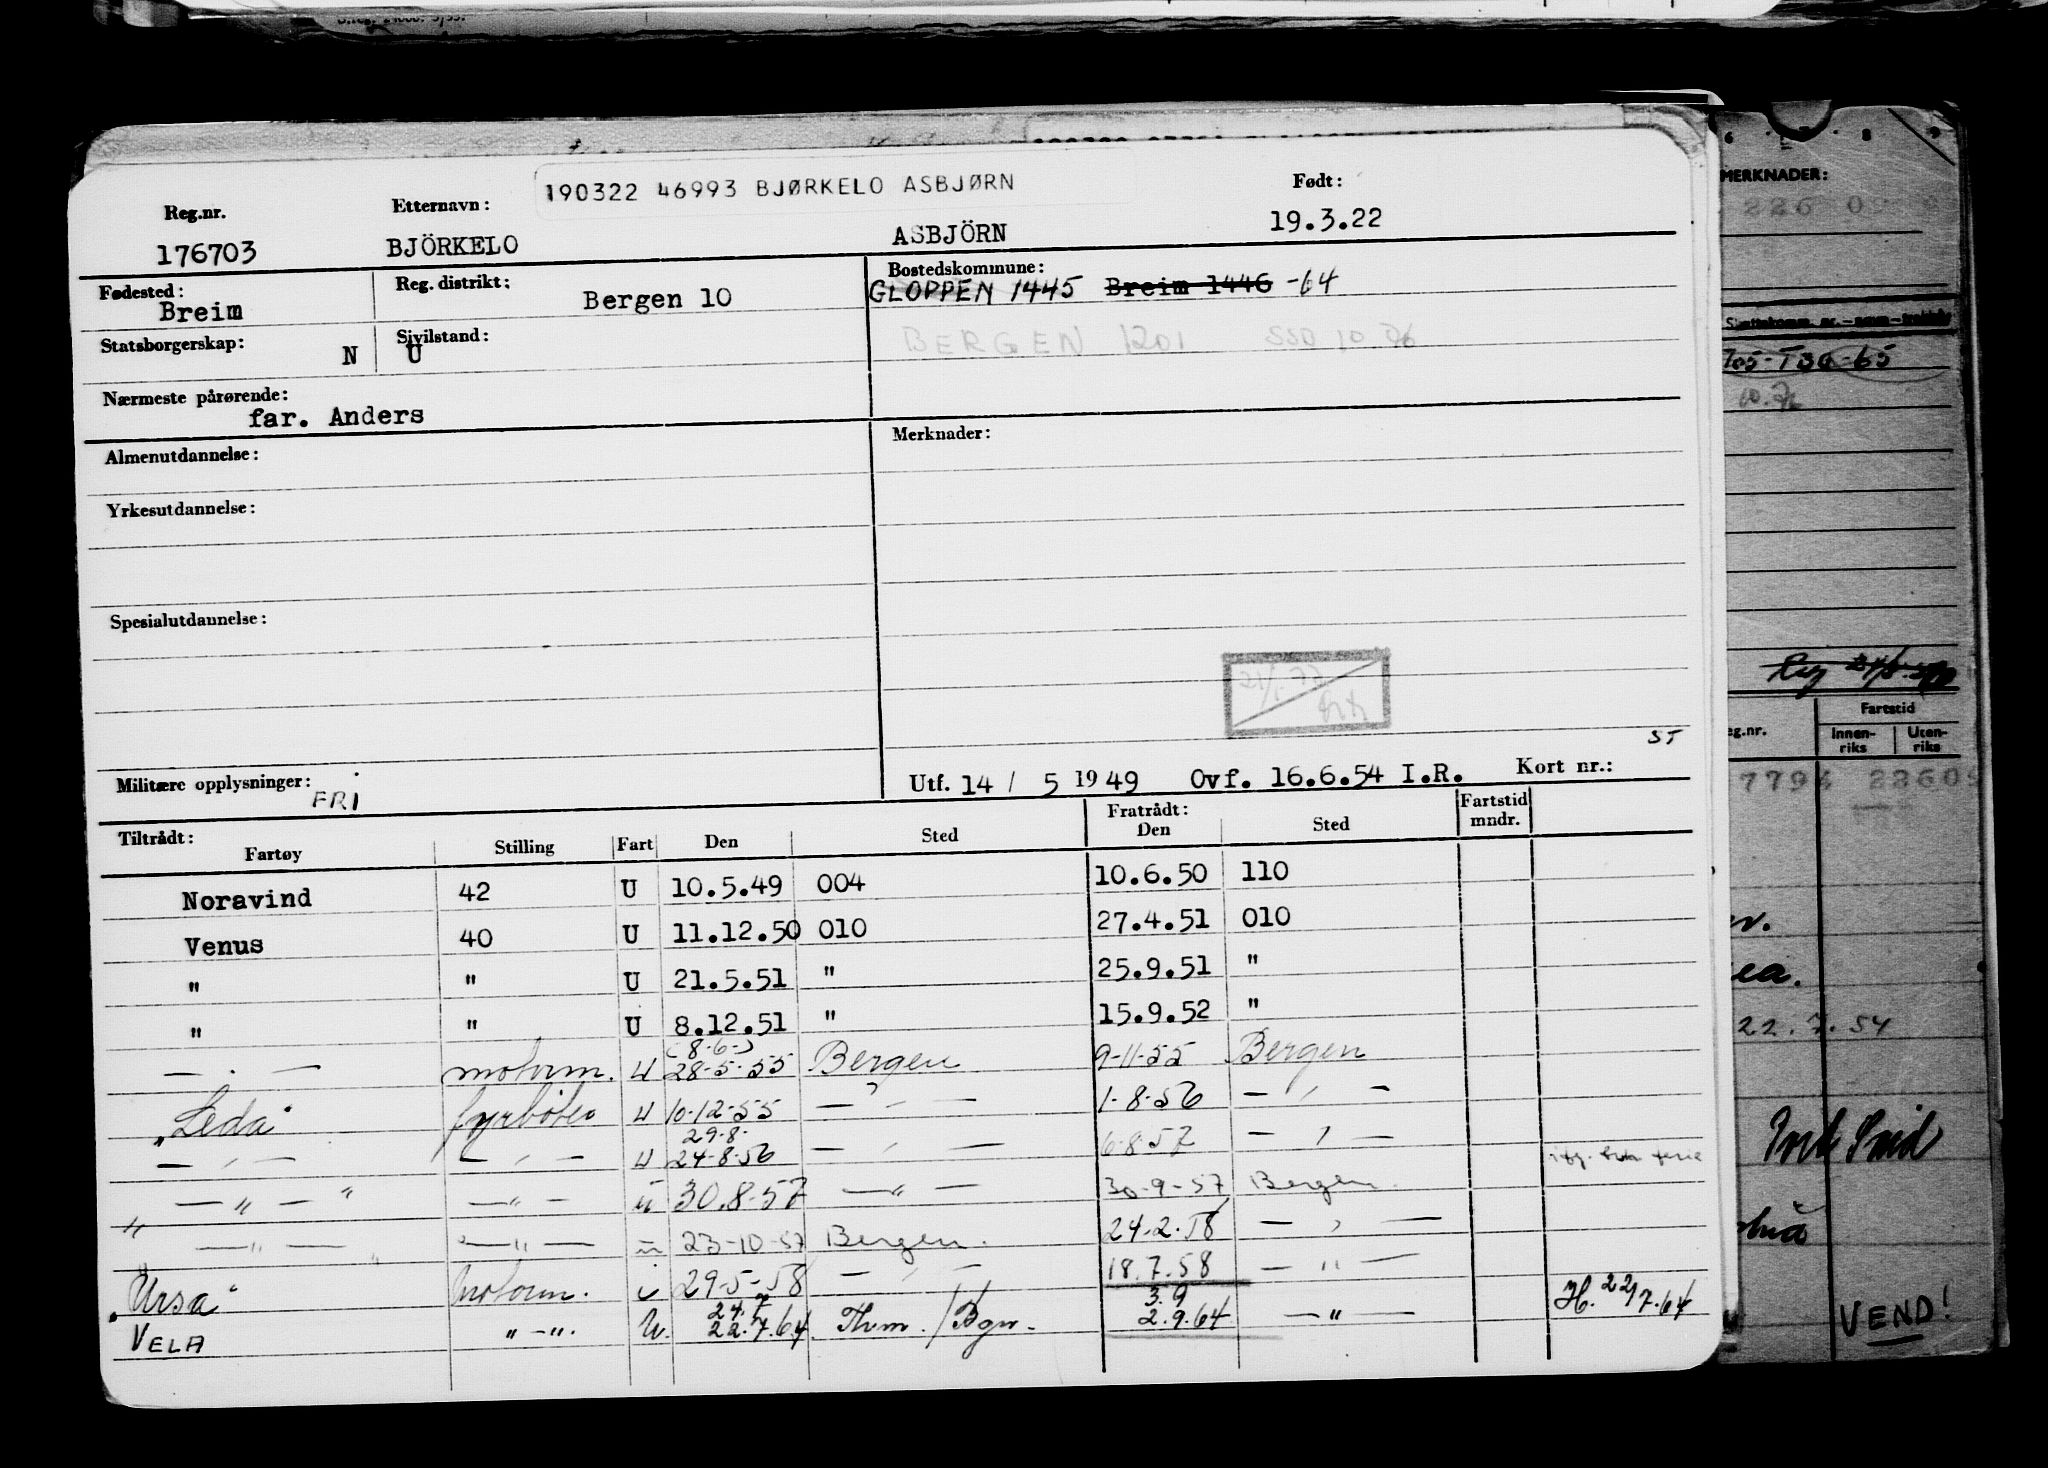 190322 46993 BJØRKELO ASBJØRN
Reg.nr. Etternavn: Født:
176703 BJÖRKELO ASBJÖRN 19.3.22
Fødested: Breim Reg. distrikt: Bergen 10 Bostedskommune: GLOPPEN 1445 Breim 1446 -64
Statsborgerskap: N Sivilstand: U BERGEN 1201
Nærmeste pårørende:
far. Anders
Almenutdannelse: Merknader:
Yrkesutdannelse:
Spesialutdannelse:
ST
Militære opplysninger: FRI Utf. 14 / 5 1949 Ovf. 16.6.54 I.R. Kort nr.:
Tiltrådt: Fratrådt:
Fartøy Stilling Fart Den Sted Den Sted Fartstid mndr.
Noravind 42 U 10.5.49 004 10.6.50 110
Venus 40 U 11.12.50 010 27.4.51 010
" " U 21.5.51 " 25.9.51 "
" " U 8.12.51 " 15.9.52 "
(8-6-)
— " — motorm. U 28-5-55 Bergen 9-11-55 Bergen
"Leda" fyrbøter U 10-12-55 — " — 1-8-56 — " —
29-8-
— " — — " — U 24-8-56 — " — 6-8-57 — " —
— " — — " — U 30.8-57 — " — 30-9-57 Bergen.
— " — — " — U 23-10-57 Bergen. 24-2-58 — " —
"Ursa" Motorm. U 29-5-58 — " — 18.7.58 — " —
24.7 3.9
VELA " — ". U. 22.7.64. Thm. / Bgn. 2.9.64 — " — H. 22/7.64
MERKNADER:
Fartstid
Innenriks Utenriks
22.7.54
VEND!